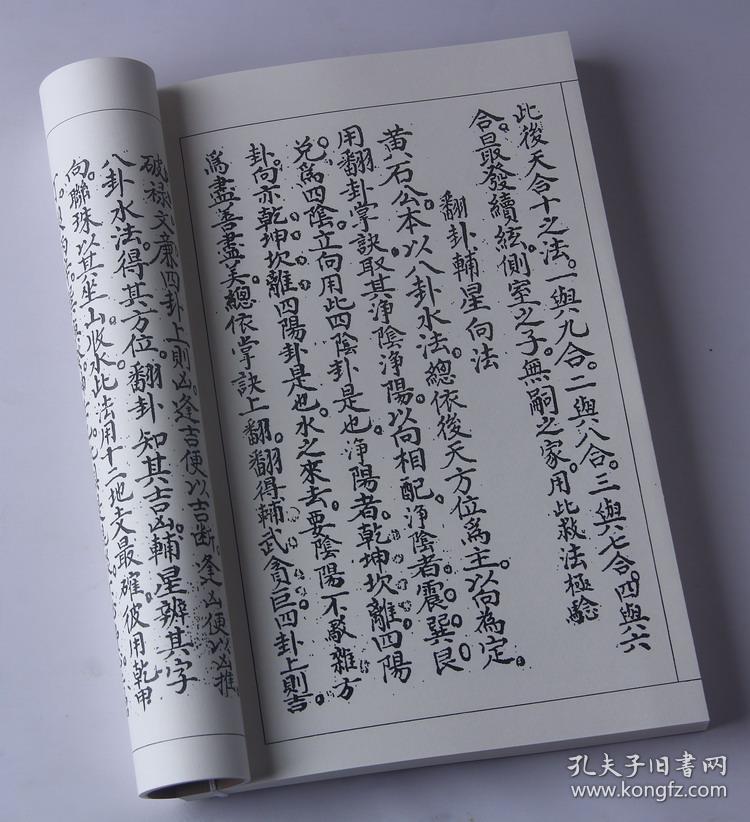 此後天合十之法。一與九合。二與八合。三與七合。四與六
合。最發續絃。側室之子。無嗣之家。用此救法極驗
翻卦輔星向法
黄石公。本以八卦水法。總依後天方位為主。以向為定。
用翻卦掌訣取其净陰净陽。以向相配。净陰者。震。巽。艮。
兌為四陰。立向用此四陰卦是也。净陽者。乾坤坎離。四陽
卦。向亦乾坤坎離四陽卦是也。水之來去。要陰陽不駁雜。方
為盡善盡美。總依掌訣上翻。翻得輔武貪巨四卦上則吉。
破禄文廉四卦上則凶。逢吉便以吉斷。逢凶便以凶推。
八卦水法。得其方位。翻卦知其吉凶。輔星辨其字
向。聯珠以其坐山收水。此法用十二地支最確。彼用乾甲
孔夫子旧书网
www.kongfz.com